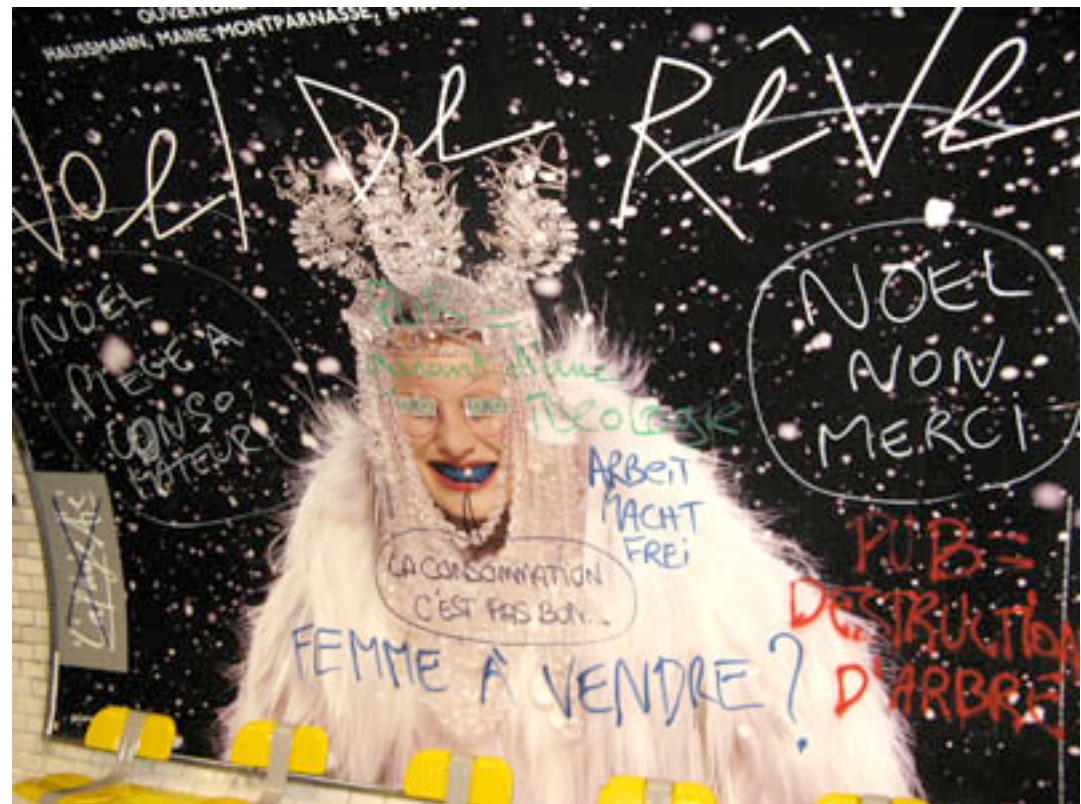 OUVERTURE
HAUSSMANN, MAINE-MONTPARNASSE,
Noel De RêVe
NOEL
PIEGE A
CONSO
MATEUR
PUB =
d'une
Théologie
NOEL
NON
MERCI
ARBEIT
MACHT
FREI
LA CONSOMMATION
C'EST PAS BON...
PUB =
DESTRUCTION
D'ARBRE
FEMME À VENDRE ?